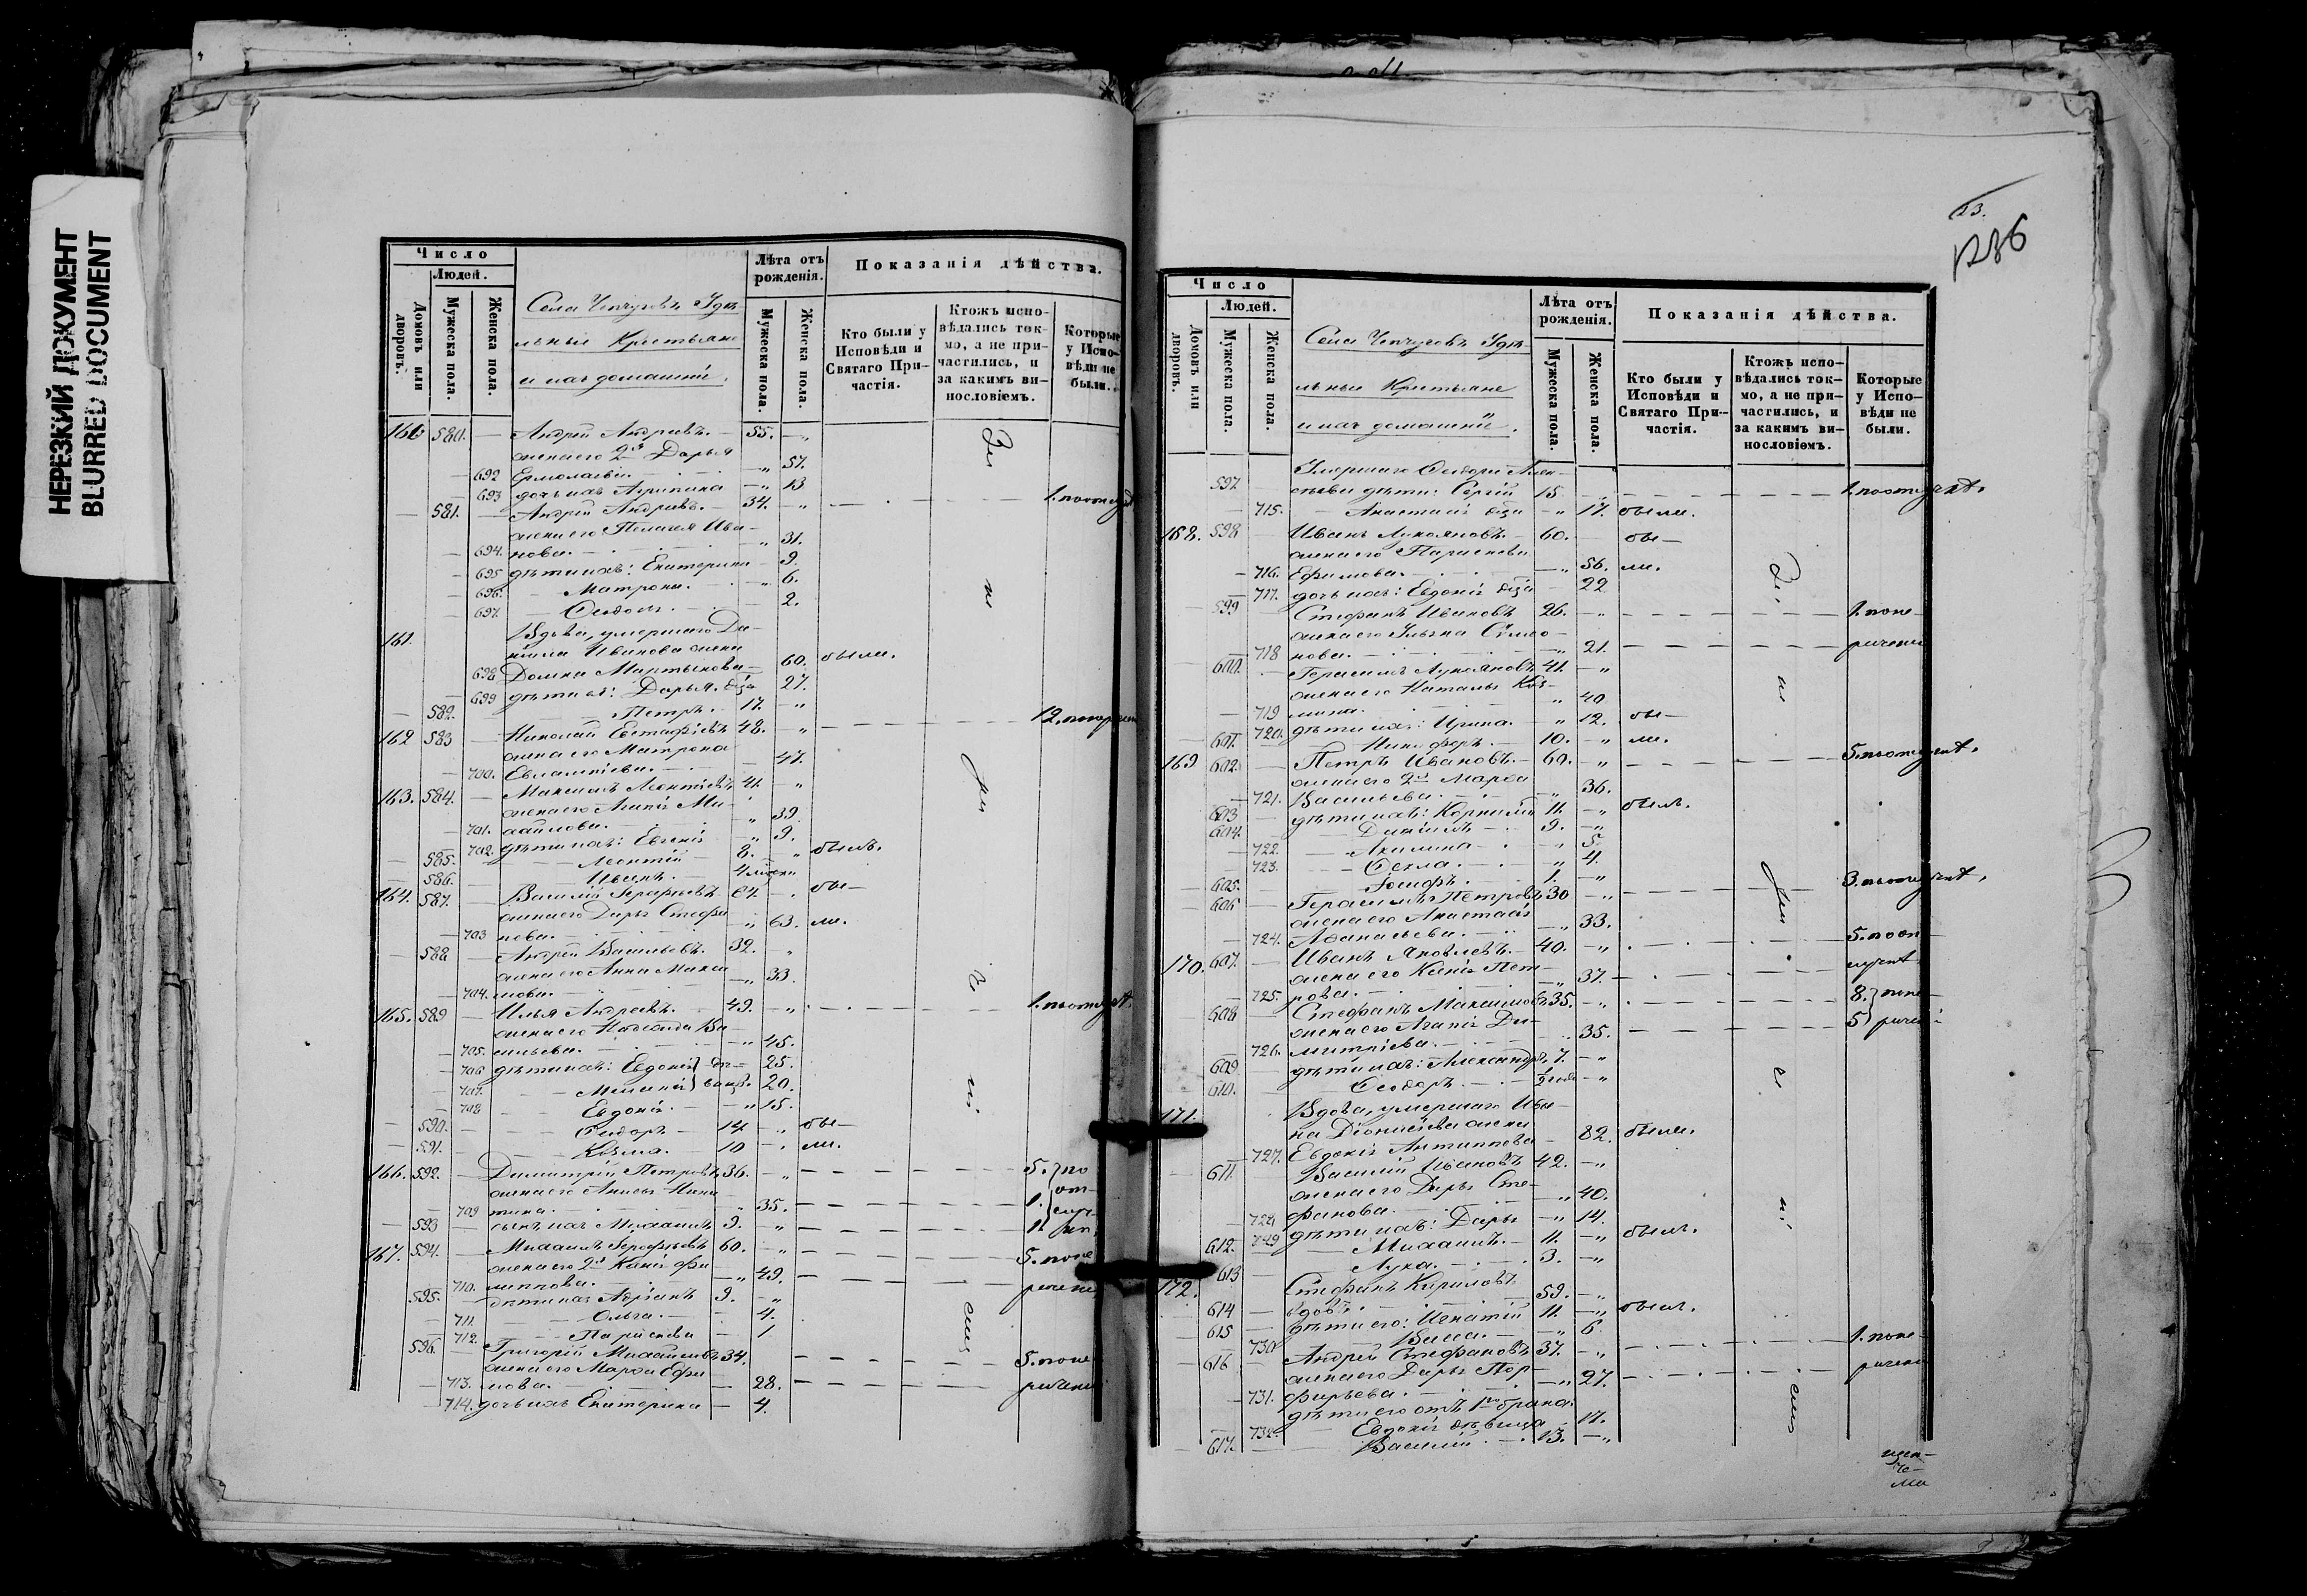 НЕРЕЗКИЙ ДОКУМЕНТ
BLURRED DOCUMENT
Число
Людей.
Домовъ или дворовъ.
Мужеска пола.
Женска пола.
Села Чепчуговъ Удѣ-
льные Крестьяне
и ихъ домашніе.
Лѣта отъ рожденія.
Мужеска пола.
Женска пола.
Показанія дѣйства.
Кто были у Исповѣди и Святаго При-частія.
Ктожъ испо-вѣдались ток-мо, а не при-частились, и за какимъ ви-нословіемъ.
Которые у Испо-вѣди не были.
160 580. — Андрей Андреевъ. — 55. — „
жена его 2я Дарья
— 692 Ермолаева — „ 51.
— 693 дочь ихъ Агрипина — „ 13
— 581. — Андрей Андреевъ. — 34. — „ 1. по отлуч
жена его Пелагея Ива-
— 694. нова. — „ 31.
— 695 дѣти ихъ: Екатерина — 9.
— 696. — Матрона. — „ 6.
— 697. — 2.
161. Вдова, умершаго Да-
ніила Иванова жена
698 Домна Мартынова — 60. были.
— 699 дѣти ея: Дарья. дѣв. 27.
— 582. — Петръ. — 17. — „
162 583 — Николай Евстафіевъ 48. — „
жена его Матрона
— 700. Евлампіева. — 47.
163. 584. — Максимъ Леонтіевъ 41. — „
жена его Агапія Ми-
— 701. хайлова. „ 39.
— 702. дѣти ихъ: Евгенія „ 9.
— 585. — Леонтій 8. „ былъ.
— 586. — Иванъ. — 4
164. 587. — Василій 64. — бы-
жена его Дарья Стефа
— 703 нова. „ 63. ли.
— 588 — Андрей Васильевъ. 32. — „
жена его Анна Макси
— 704. мова. — „ 33.
165. 589 — Илья Андреевъ. — 49. — „ 1. по отлуч.
жена его Надежда Ва
— 705. сильева. — „ 45.
— 706 дѣти ихъ: Евдокія 25.
— 707. — 20.
— 708 — Евдокія. — „ 15.
— 590. — Ѳеодоръ — 14 — „ бы-
— 591. — Козма. — 10 — ли.
166. 592. — Димитрій Петровъ 36. — „ 5. по
жена его Анисья Ники
— 709 тина. „ 35. 1. от-
— 593 — сынъ ихъ Михаилъ 9. — „ луч-
167. 594. — Михаилъ 60. — „ 5. по не
жена его 2я Ксенія Фи
— 710. липпова. — „ 49. раченію
— 595. — дѣти ихъ Адріанъ 9. — „
— 711. — Ольга. — 4.
— 712. — Параскева — 1
— 596. — Григорій Михайловъ 34. 5. по не
жена его Марѳа Ефи
— 713. мова. — 28. раченію
— 714. дочь ихъ Екатерина — 4.
23.
1286
Число
Людей.
Домовъ или дворовъ.
Мужеска пола.
Женска пола.
Села Чепчуговъ Удѣ-
льные Крестьяне
и ихъ домашніе.
Лѣта отъ рожденія.
Мужеска пола.
Женска пола.
Показанія дѣйства.
Кто были у Исповѣди и Святаго При-частія.
Ктожъ испо-вѣдались ток-мо, а не при-частились, и за какимъ ви-нословіемъ.
Которые у Испо-вѣди не были.
Умершаго Ѳеодора Алек-
597. сѣева дѣти: Сергій 15 — „ 1. по отлучкѣ.
— 715. — Анастасія дѣв. — „ 17. были.
168. 598 Иванъ Лукояновъ. 60. — бы-
жена его Параскева
— 716. Ефимова. — „ 56. ли.
— 717. дочь ихъ: Евдокія дѣв. — 22
599 Стефанъ Ивановъ 26. — „ 1. по не-
жена его Ульяна Симео-
— 718 нова. — „ 21. раченію
600. — Герасимъ Лукояновъ 41. — „
жена его Наталья Коз-
— 719 мина. „ 40
— 720. дѣти ихъ: Ирина. — „ 12. бы-
— 601. — Никифоръ. — 10. — „ ли.
169 602. — Петръ Ивановъ. — 60. — „ 5. по отлучкѣ.
жена его 2я Марѳа
— 721. Васильева. — „ 36.
603 — дѣти ихъ: Корнилій 11. — „ былъ.
604. — Даніилъ — 9. — „
— 722. — Акилина — „ 5.
— 723. — Ѳекла. — „ 4.
— 605. — Іосифъ. 1. — „
— 606 — Герасимъ Петровъ 30 — „ 3. по отлучкѣ.
жена его Анастасія
— 724. Аѳанасьева. — „ 33.
170. 607. — Иванъ Яковлевъ. — 40. — „ 5. по от-
жена его Ксенія Пет-
— 725. рова. — „ 37. лучкѣ
— 608 — Стефанъ Максимовъ 35. — „ 8. по не-
жена его Агапія Ди-
— 726. митріева. — „ 35. 5 раченію
— 609 — дѣти ихъ: Александръ 7. — „
— 610. — Ѳеодоръ. — ½ года — „
171. Вдова, умершаго Ива-
на Діонисіева жена
— 727. Евдокія Антиппова — 82. были.
— 611. — Василій Ивановъ 42. — „
жена его Дарья Сте-
— 728 фанова. — „ 40.
— 729 дѣти ихъ: Дарья — „ 14.
612. — Михаилъ. — 11. — „ былъ.
613 — Лука. — 3. — „
172. Стефанъ Кириловъ
614 — вдовъ 59. — „
— 615 — дѣти его: Игнатій 11. — „ былъ.
730 — Васса. — „ 6.
— 616 — Андрей Стефановъ 37. — „ 1. по не-
жена его Дарья Пор-
— 731. фирьева. — „ 27. раченію
дѣти его отъ 1го брака:
— 732. — Евдокія дѣвица — 17.
— 617. — Василій — 13. — „